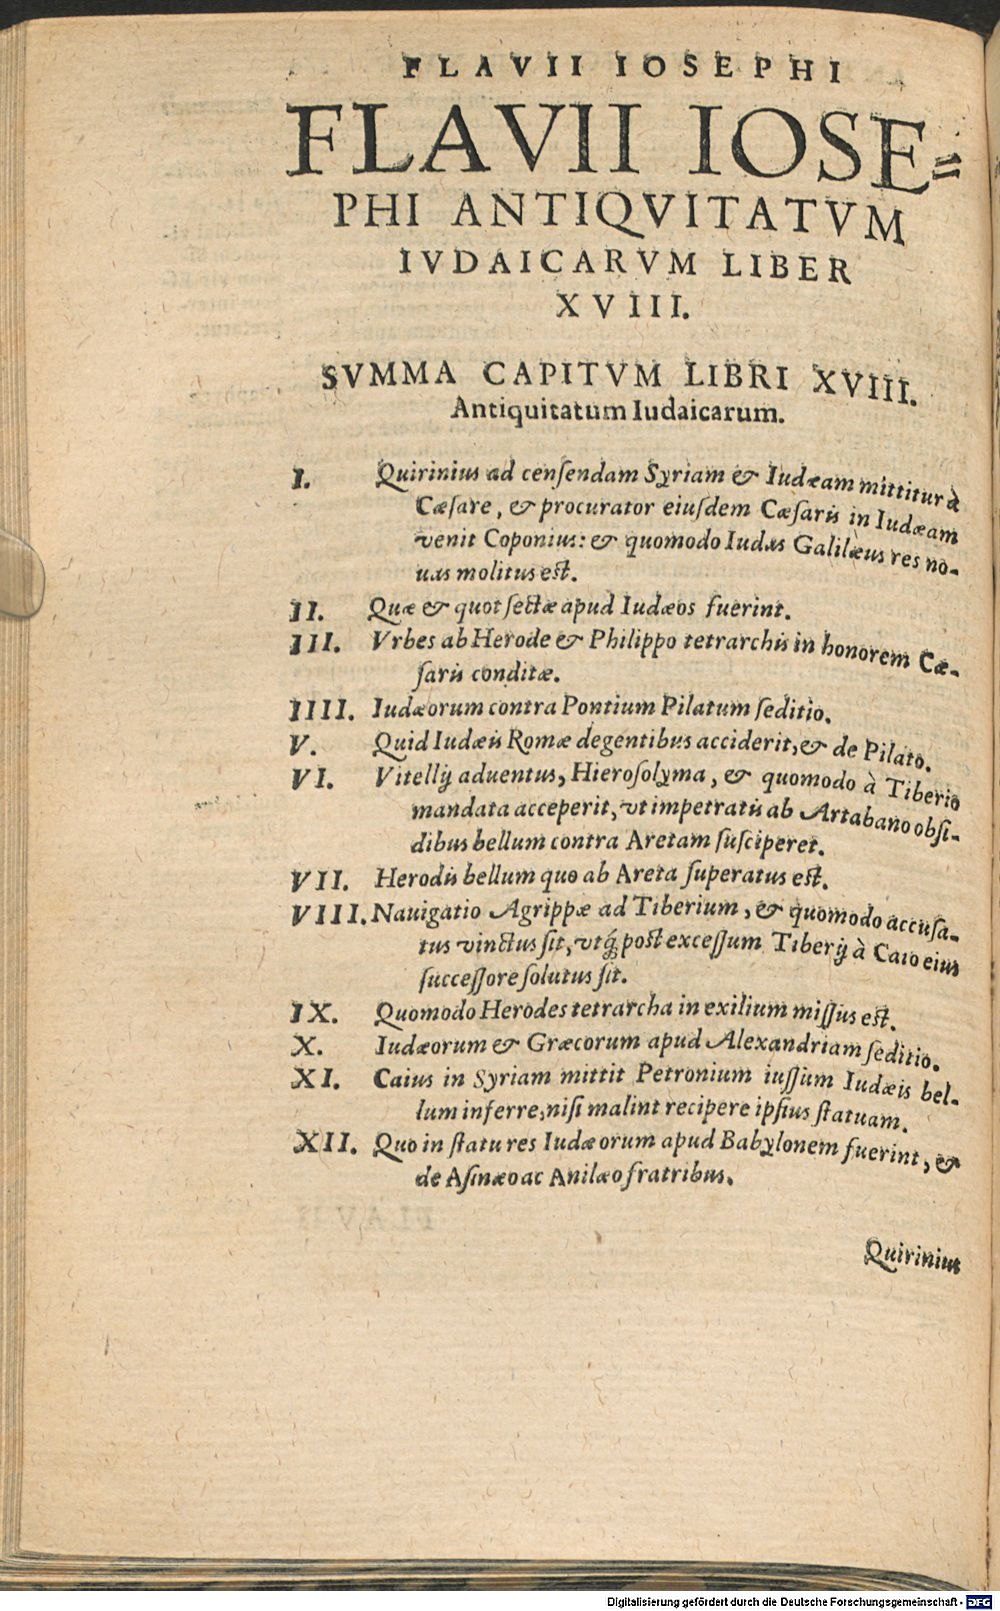 FLAVII IOSEPHI
FLAVII IOSE=
PHI ANTIQVITATVM
IVDAICARVM LIBER
XVIII.
SVMMA CAPITVM LIBRI XVIII.
Antiquitatum Iudaicarum.
I. Quirinius ad cenſendam Syriam & Iudæam mittitur à
Cæſare, & procurator eiuſdem Cæſaris in Iudæam
venit Coponius: & quomodo Iudas Galilæus res no-
uas molitus est.
II. Quæ & quot ſectæ apud Iudæos fuerint.
III. Vrbes ab Herode & Philippo tetrarchis in honorem Cæ-
ſaris conditæ.
IIII. Iudæorum contra Pontium Pilatum ſeditio.
V. Quid Iudæis Romæ degentibus acciderit, & de Pilato.
VI. Vitellij aduentus, Hieroſolyma, & quomodo à Tiberio
mandata acceperit, vt impetratis ab Artabano obſi-
dibus bellum contra Aretam ſuſciperet.
VII. Herodis bellum quo ab Areta ſuperatus est.
VIII. Nauigatio Agrippæ ad Tiberium, & quomodo accuſa-
tus vinctus ſit, vtq́; post exceſſum Tiberij à Caio eius
ſucceſſore ſolutus ſit.
IX. Quomodo Herodes tetrarcha in exilium miſſus est.
X. Iudæorum & Græcorum apud Alexandriam ſeditio.
XI. Caius in Syriam mittit Petronium iuſſum Iudæis bel-
lum inferre, niſi malint recipere ipſius ſtatuam.
XII. Quo in ſtatu res Iudæorum apud Babylonem fuerint, &
de Aſinæo ac Anilæo fratribus.
Quirinius
Digitalisierung gefördert durch die Deutsche Forschungsgemeinschaft - DFG